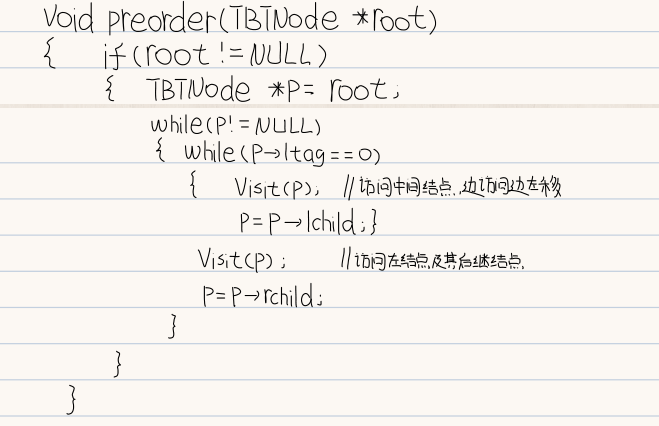 Void preorder(TBTNode *root)
{ if(root!=NULL)
{ TBTNode *P= root;
while(P!=NULL)
{ while(P→ltag==0)
{ Visit(p); //访问中间结点,边访问边左移
P=P→lchild;}
Visit(p); //访问左结点及其后继结点.
P=P→rchild;
}
}
}